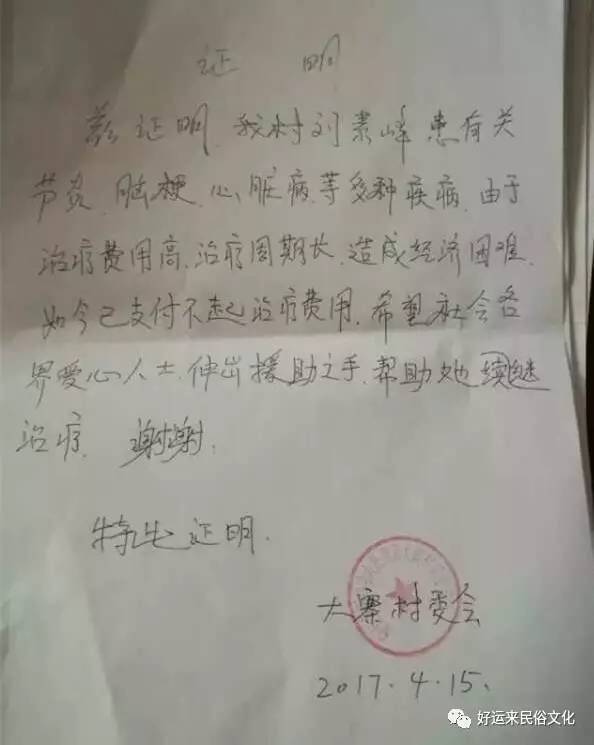 证 明
兹证明，我村刘素峰患有关
节炎、脑梗、心脏病等多种疾病，由于
治疗费用高，治疗周期长，造成经济困难，
如今已支付不起治疗费用，希望社会各
界爱心人士，伸出援助之手，帮助她续继
治疗，谢谢，
特此证明．
大寨村委会
2017.4.15.
好运来民俗文化